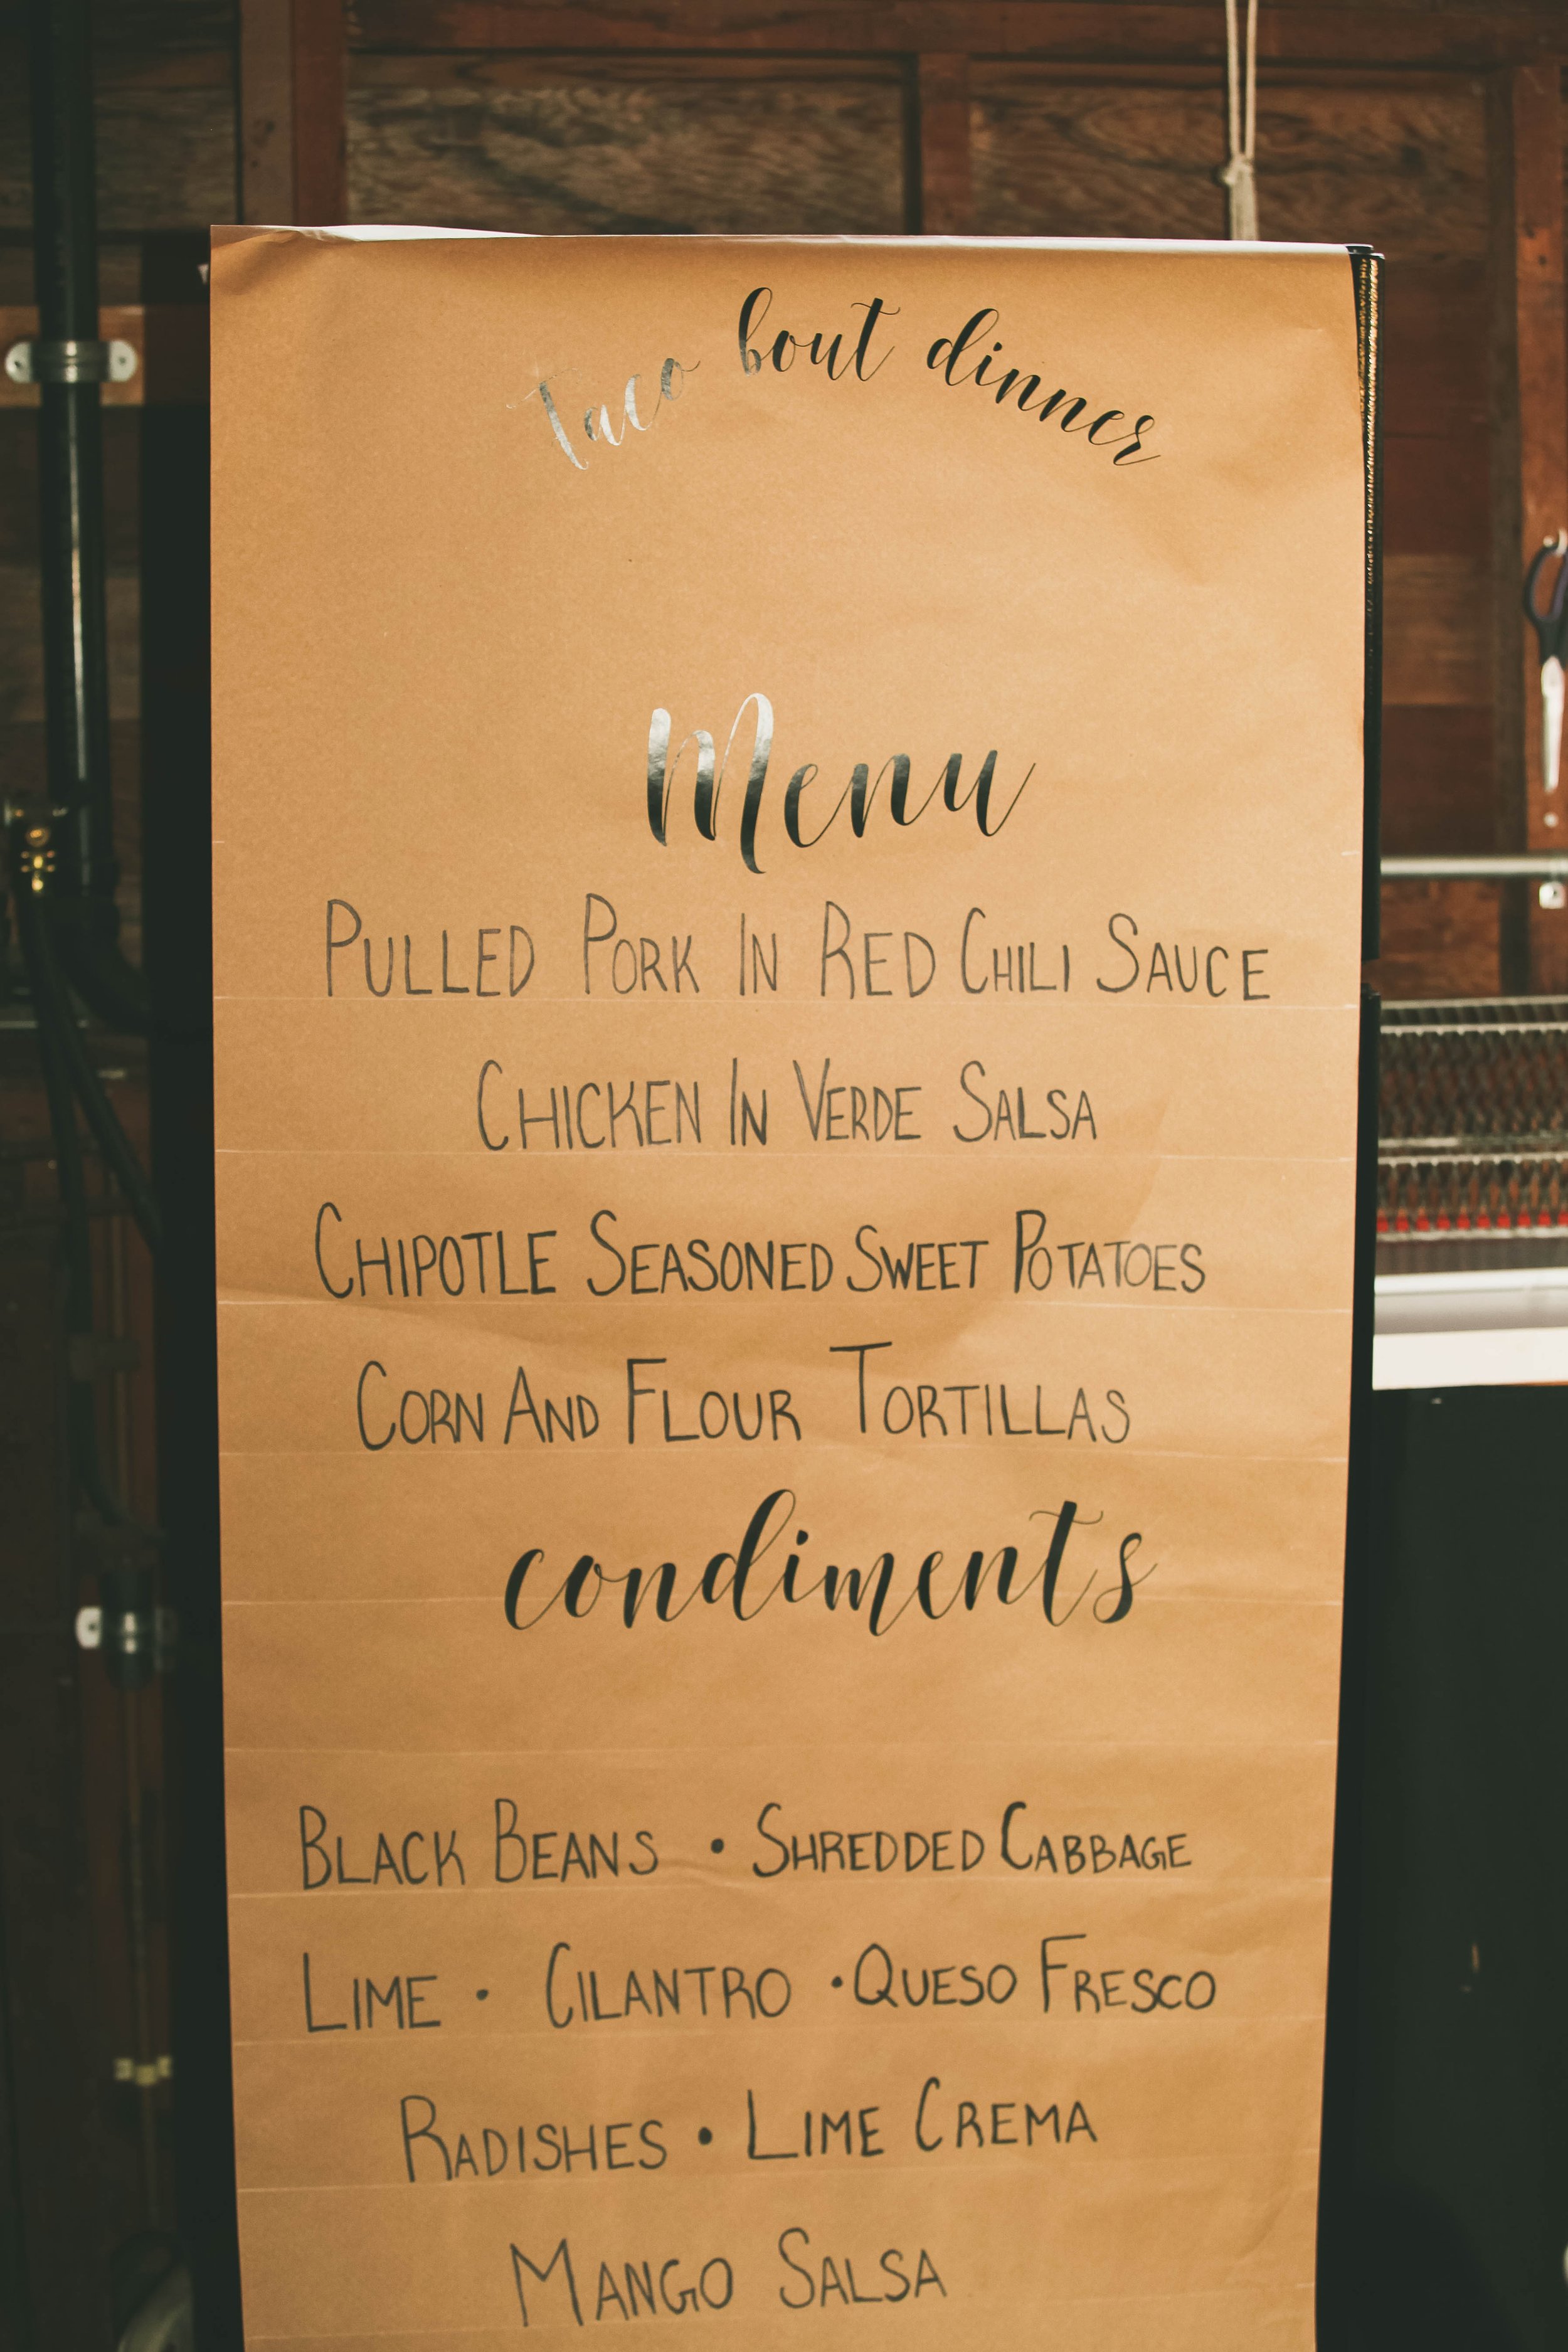 Taco bout dinner
Menu
PULLED PORK IN RED CHILI SAUCE
CHICKEN IN VERDE SALSA
CHIPOTLE SEASONED SWEET POTATOES
CORN AND FLOUR TORTILLAS
condiments
BLACK BEANS • SHREDDED CABBAGE
LIME • CILANTRO • QUESO FRESCO
RADISHES • LIME CREMA
MANGO SALSA